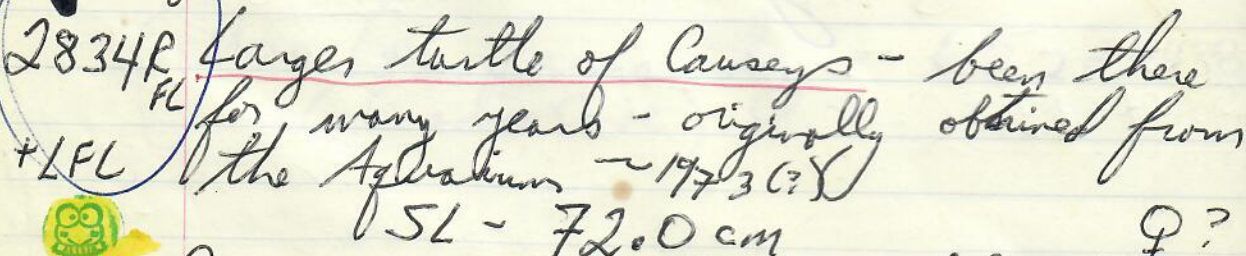 2834R Larger turtle of Causeys - been there
FL for many years - originally obtained from
+LFL the Aquarium ~1973(?)
SL - 72.0 cm ♀?